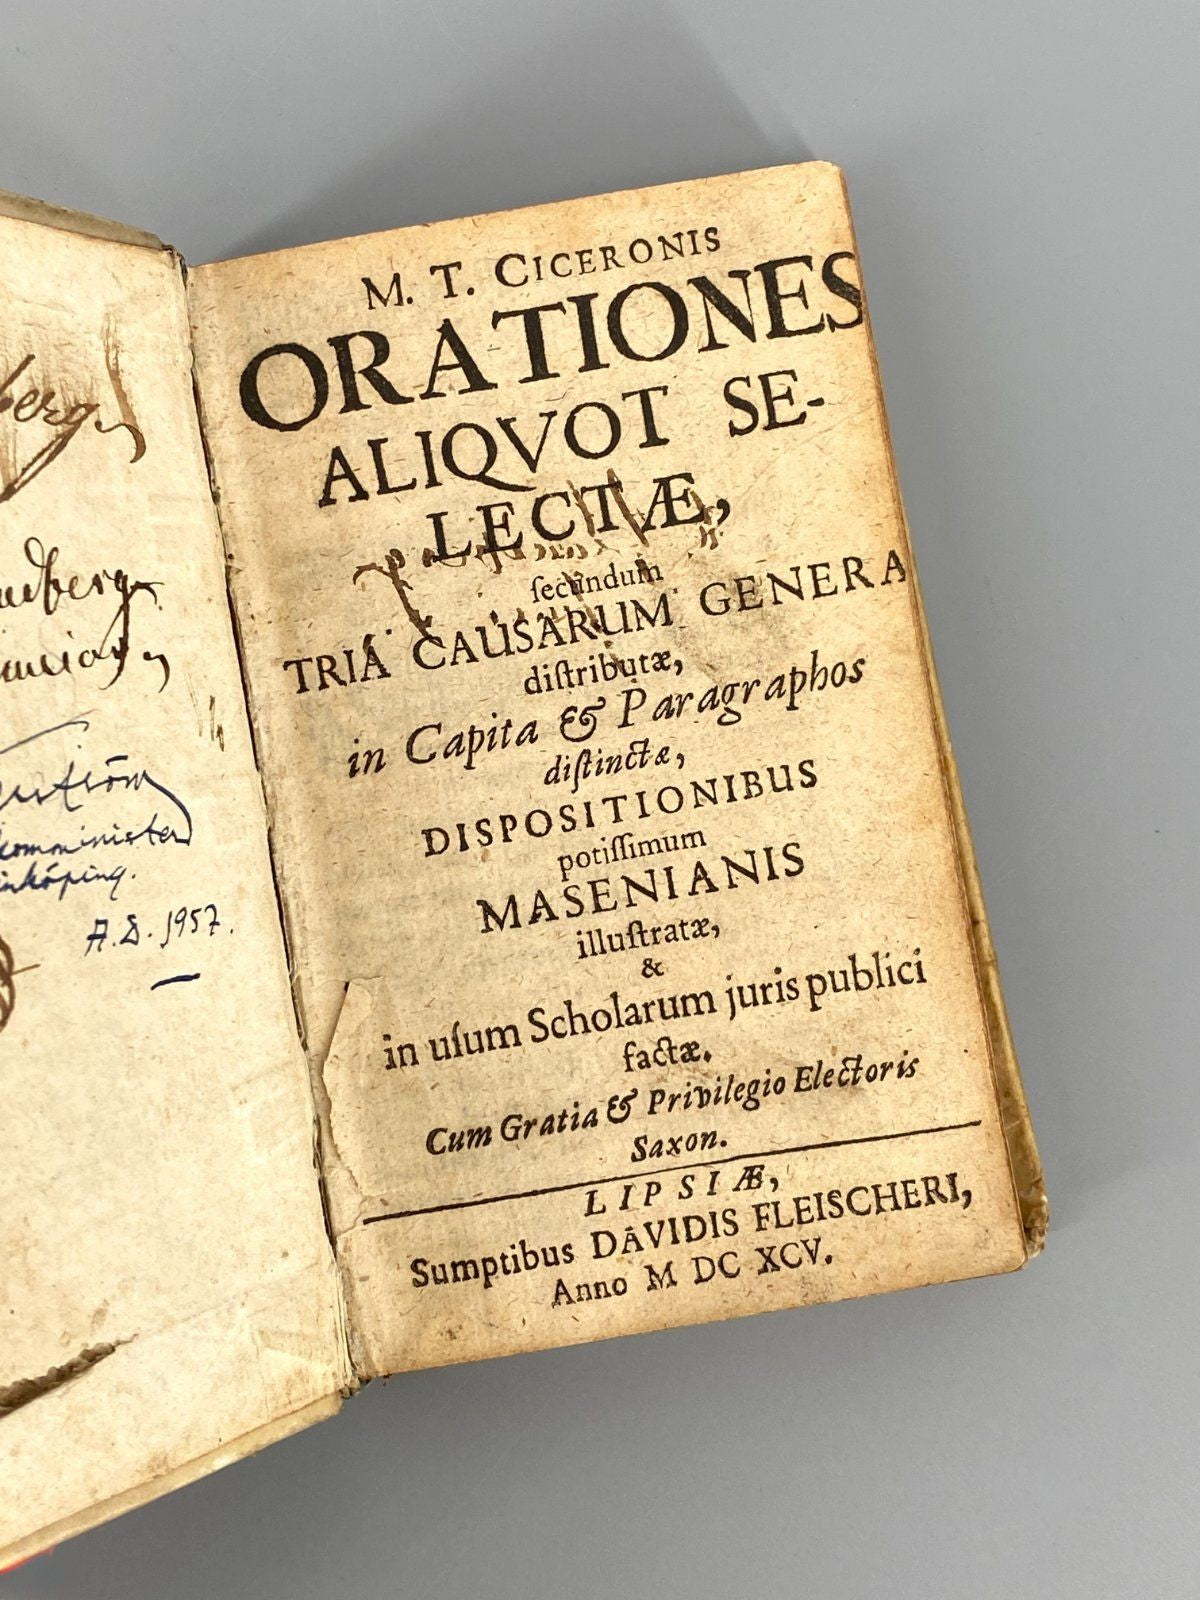 komminister
A.D. 1957.
M. T. CICERONIS
ORATIONES
ALIQVOT SE-
LECTÆ,
ſecundum
TRIA CAUSARUM GENERA
diſtributæ,
in Capita & Paragraphos
diſtinctæ,
DISPOSITIONIBUS
potiſſimum
MASENIANIS
illuſtratæ,
&
in uſum Scholarum juris publici
factæ.
Cum Gratia & Privilegio Electoris
Saxon.
LIPSIÆ,
Sumptibus DAVIDIS FLEISCHERI,
Anno M DC XCV.